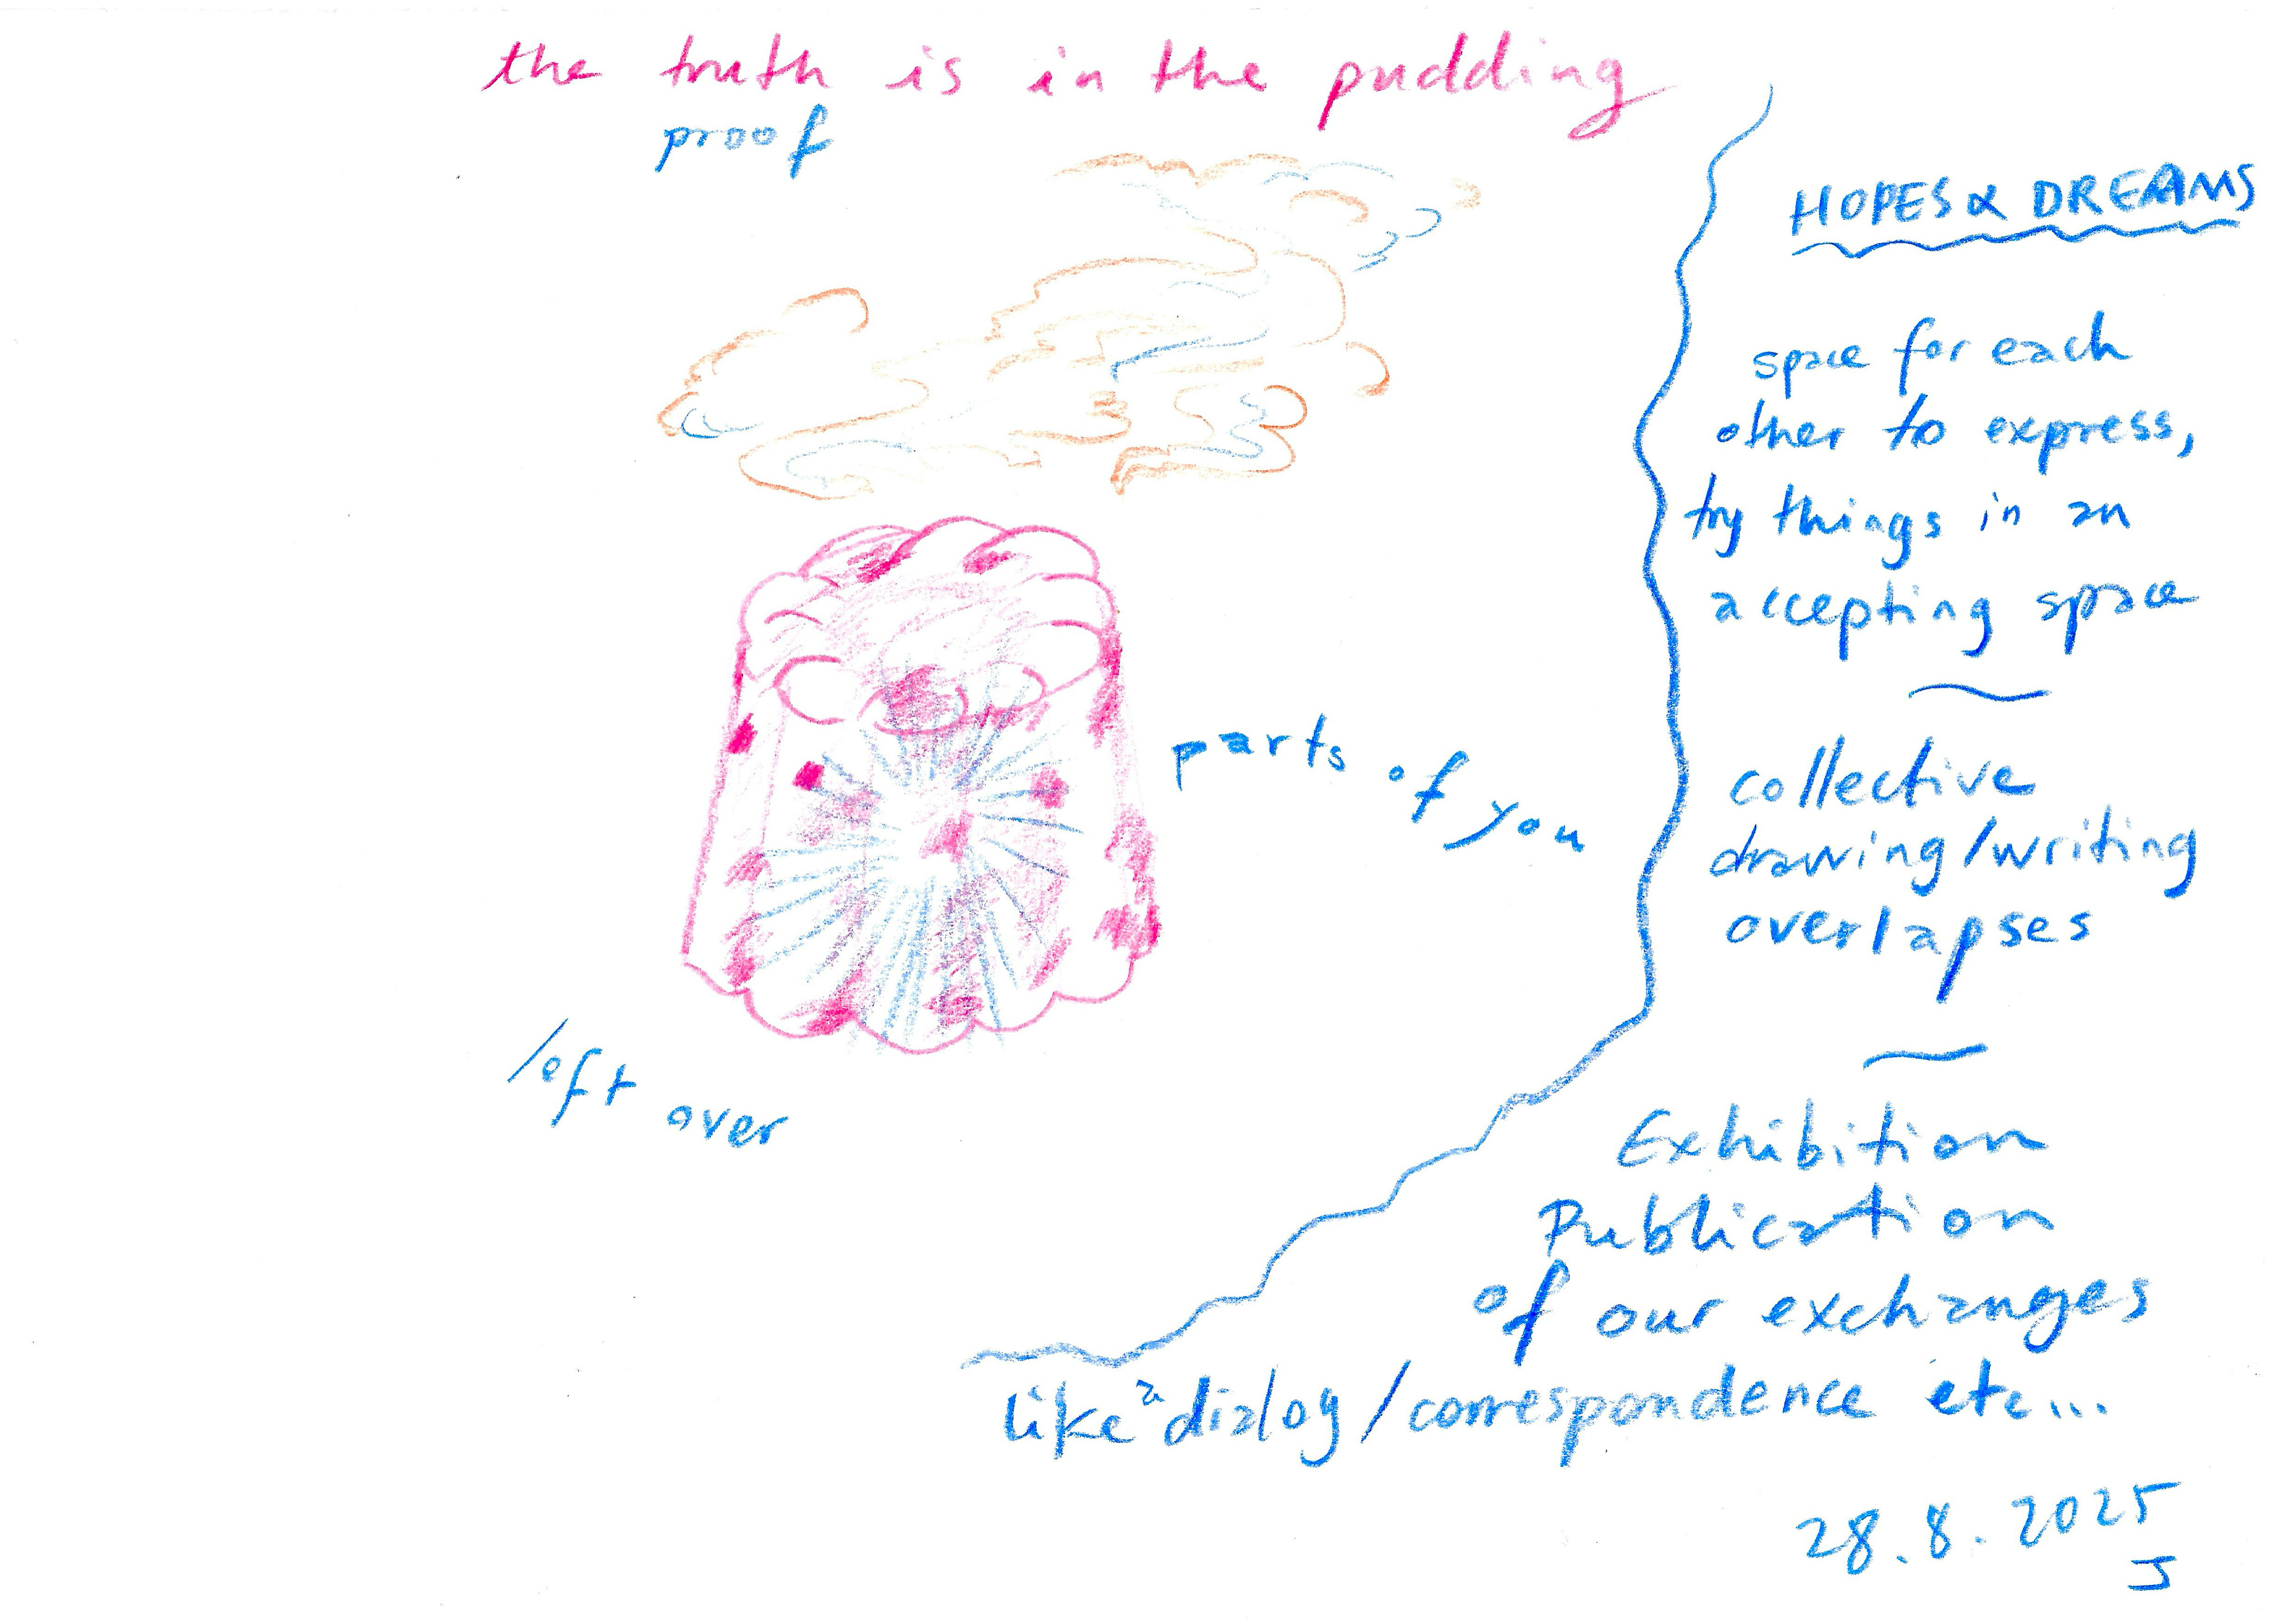 the truth is in the pudding
proof
parts of you
left over
HOPES & DREAMS
space for each
other to express,
try things in an
accepting space
collective
drawing/writing
overlapses
Exhibition
Publication
of our exchanges
like a dialog/correspondence etc...
28.8.2025
J